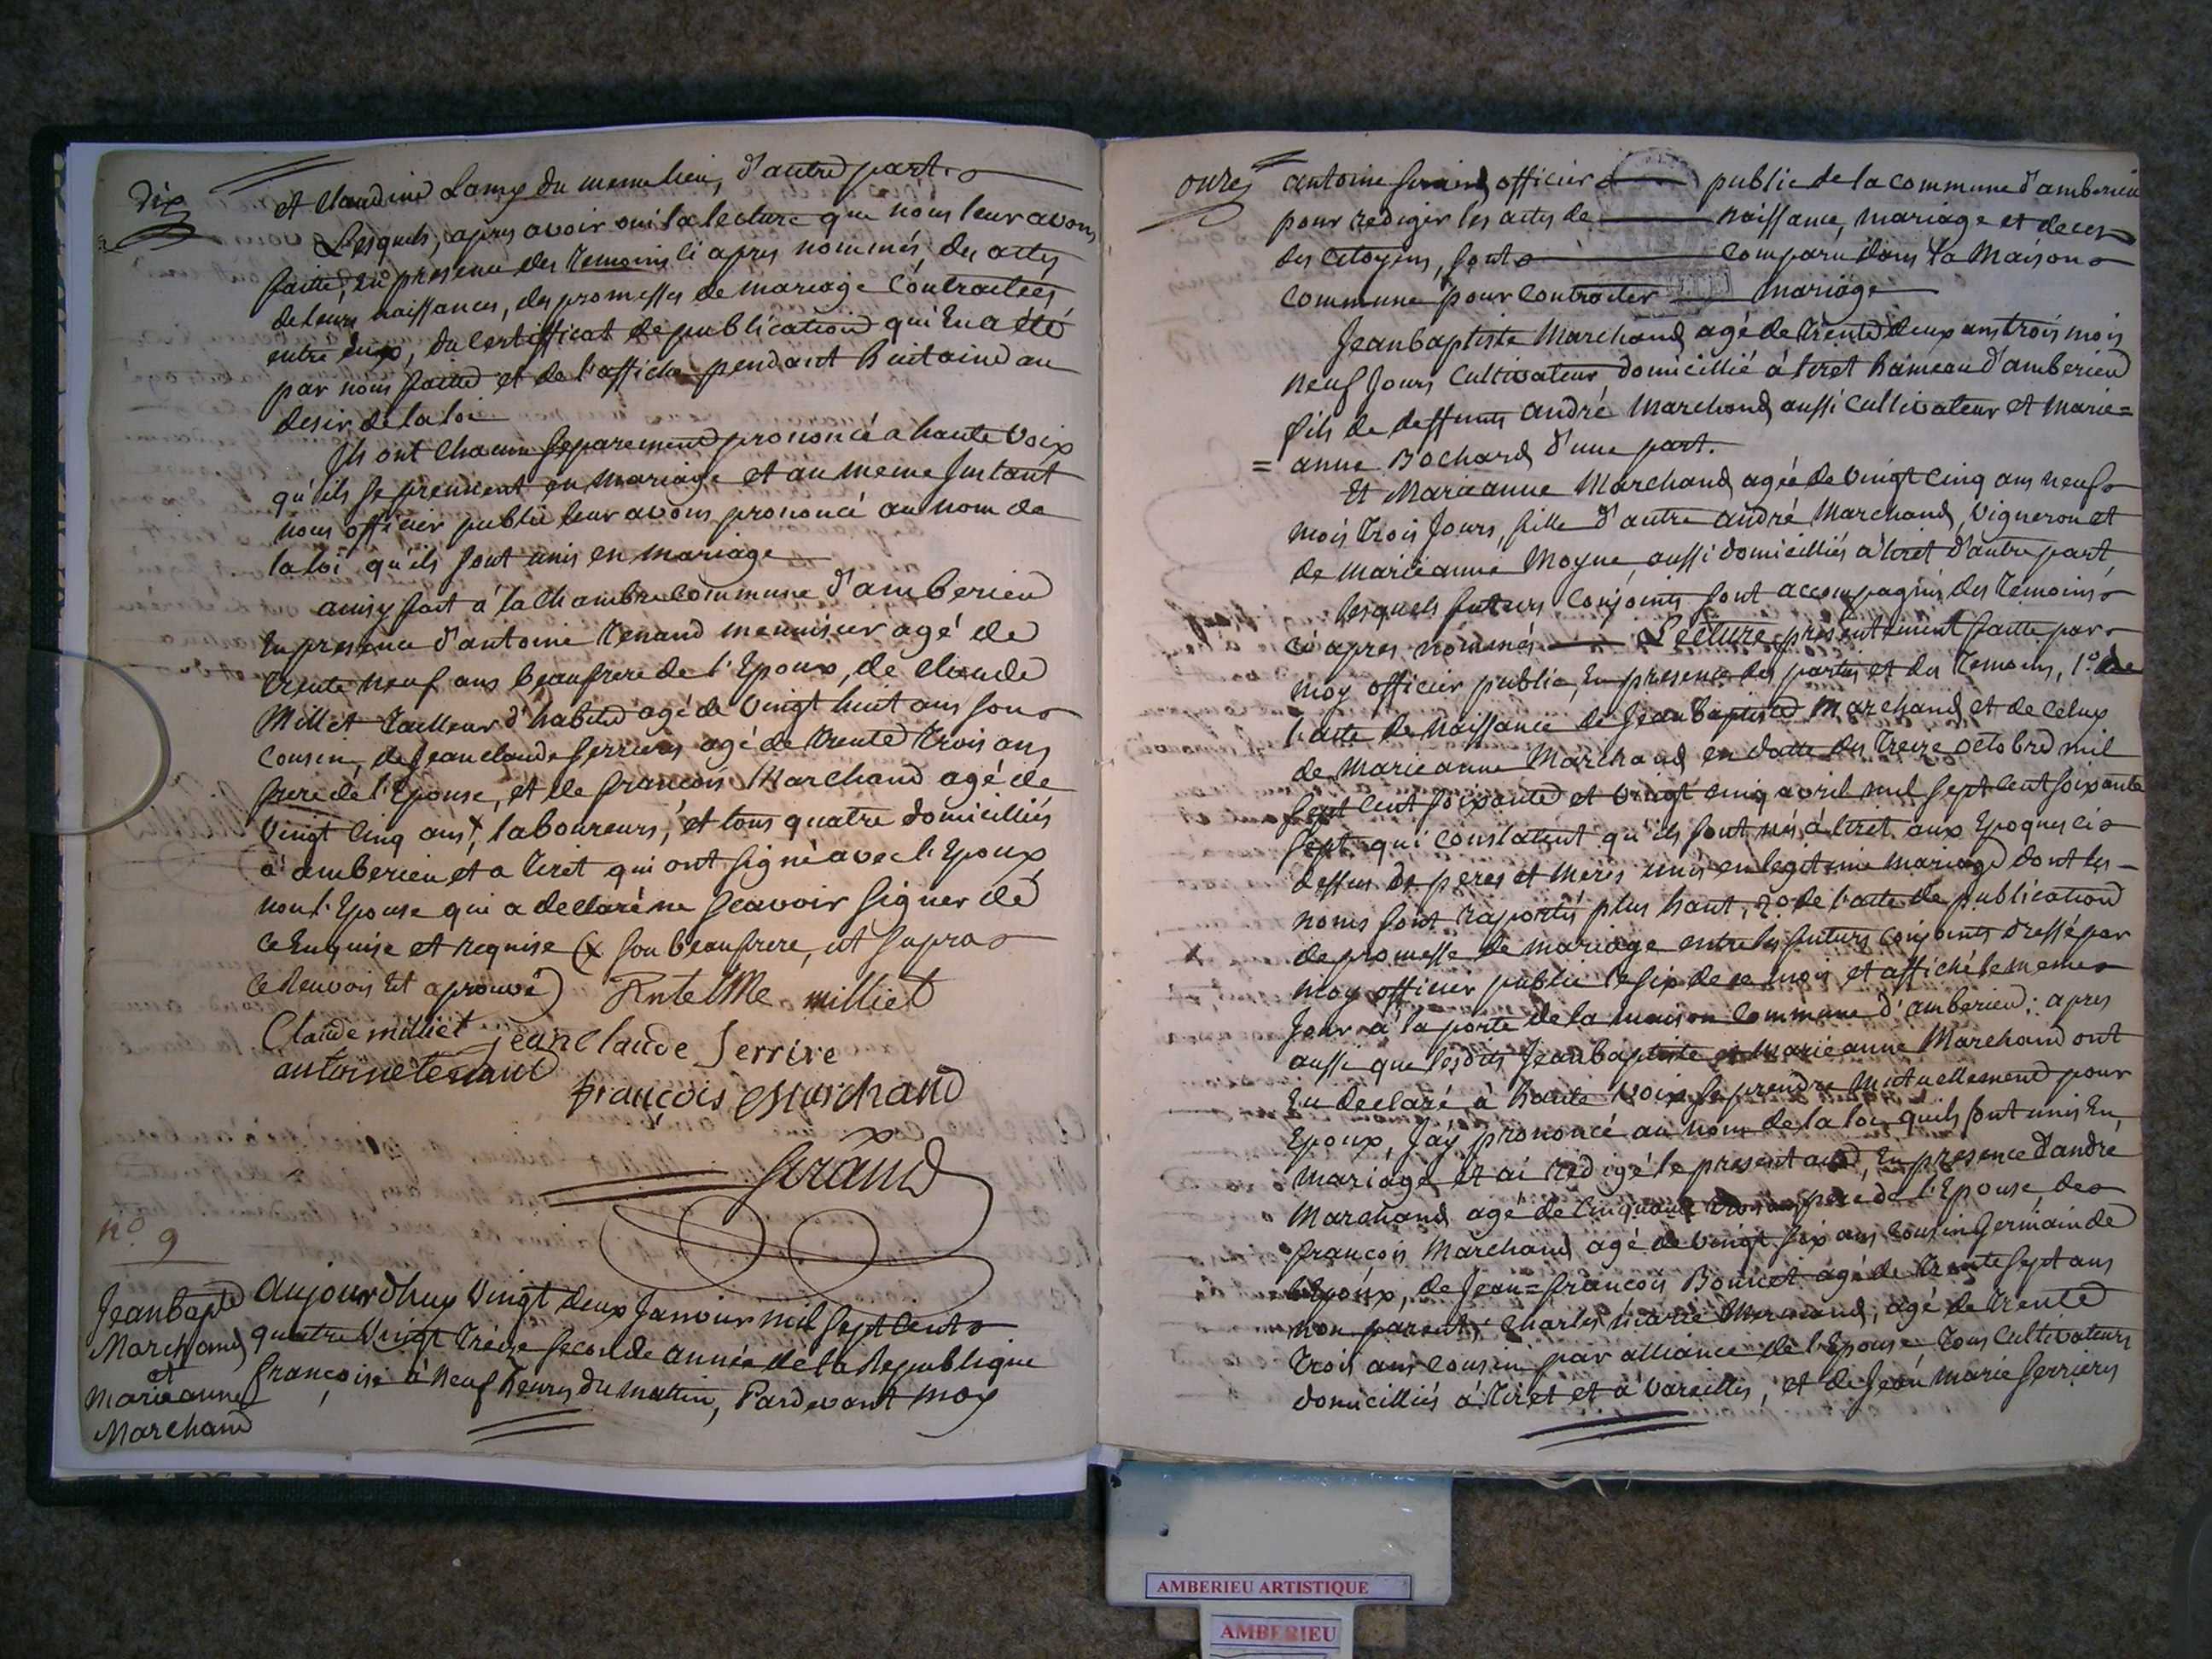 Dix
et claudine Lamy du meme lieu, d'autre part.
Lesquels, apres avoir oui la lecture que nous leur avons
faitte, en presence des temoins ci apres nommés, des actes
de leurs naissances, des promesses de mariage contractées
entre eux, du certifficat de publication qui en a été
par nous faitte et de l'affiche pendant huitaine au
desir de la loi
Ils ont chacun separement prononcé a haute voix
qu'ils se prennent en mariage et au meme Instant
nous officier public leur avons prononcé au nom de
la loi qu'ils sont unis en mariage
ainsy fait à la Chambre commune d'amberieu
En presence d'antoine Tenand menuisier agé de
trente neuf ans beaufrere de l'Epoux, de claude
Milliet tailleur d'habits agé de vingt huit ans son
Cousin, de Jean claude Serrieres agé de trente trois ans
frere de l'Epouse, et de francois Marchand agé de
vingt cinq ans x, laboureurs, et tous quatre domicilliés
à amberieu et a tiret qui ont signé avec l'Epoux
non l'Epouse qui a declaré ne scavoir signer de
ce enquise et requise (x son beaufrere, ut supra
ce renvois est aprouvé) Antelme milliet
Claude milliet jean Claude Serrire
antoine tenand
françois Marchand
n.o 9
Jean bapte
Marchand
et
Marieanne
Marchand
Aujourdhuy vingt deux Janvier mil sept cents
quatre vingt treize seconde année de la Republique
françoise à neuf heures du matin, Pardevant moy
onze
antoine officier public de la commune d'amberieu
pour rediger les actes de naissance, mariage et deces
des Citoyens, sont comparu dans la Maison
Commune pour contracter mariage
Jeanbaptiste Marchand agé de trente deux ans trois mois
neuf Jours Cultivateur domicillié à tiret hameau d'amberieu
fils de deffunts andré Marchand aussi cultivateur et Marie=
= anne Bochard d'une part.
Et Marieanne Marchand agée de vingt cinq ans neuf
mois trois Jours, fille d'autre andré Marchand, vigneron et
de marieanne Moyne aussi domicilliés à tiret d'autre part,
lesquels futurs conjoints sont accompagnés des temoins
ci apres nommés Lecture presentement faitte par
moy officier public, En presence des parties et des temoins, 1.o de
l'acte de naissance de Jeanbaptiste Marchand et de celuy
de marieanne Marchand en datte des treize octobre mil
sept cent soixante et vingt cinq avril mil sept cent soixante
sept qui constatent qu'ils sont nés à tiret aux Epoques ci
dessus de peres et meres unis en legitime mariage dont les
noms sont raportés plus haut, 2.o de l'acte de publication
x de promesse de mariage entre les futurs conjoints dressé par
moy officier public le six de ce mois et affiché le meme
Jour à la porte de la maison commune d'amberieu: apres
aussi que lesdits Jeanbaptiste et marieanne Marchand ont
Eu declaré à haute voix se prendre mutuellement pour
Epoux, J'ay prononcé au nom de la loi quils sont unis En
mariage et ai redigé le present acte, En presence d'andre
Marchand agé de cinquante trois ans pere de l'Epouse, de
françois Marchand agé de vingt six ans cousin Germain de
l'Epoux, de Jean=francois Bonnet agé de trente sept ans
non parent, Charles marie Mermand, agé de trente
trois ans cousin par alliance de l'Epouse, tous Cultivateurs
domicilliés à tiret et à Vareilles, et de Jean marie Serrieres
AMBERIEU ARTISTIQUE
AMBERIEU